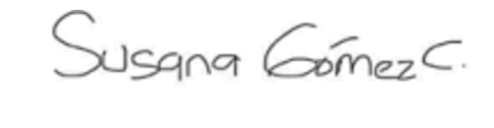 Susana Gómez C.